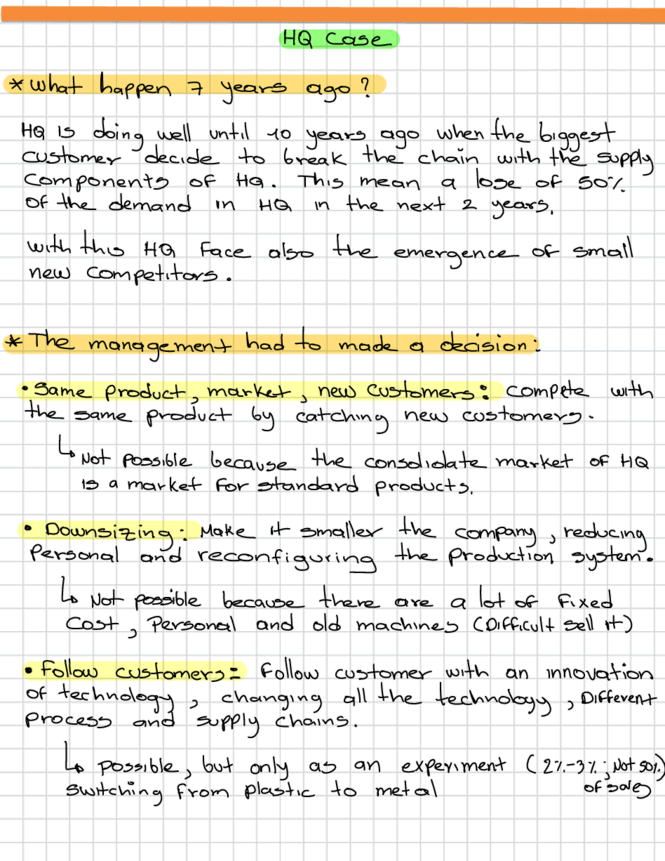 HQ Case
* What happen 7 years ago?
HQ is doing well until 10 years ago when the biggest
customer decide to break the chain with the supply
components of HQ. This mean a lose of 50%
of the demand in HQ in the next 2 years.
with this HQ Face also the emergence of small
new competitors.
* The management had to made a decision:
• Same product, market, new customers: compete with
the same product by catching new customers.
↳ Not possible because the consolidate market of HQ
is a market for standard products.
• Downsizing: Make it smaller the company, reducing
Personal and reconfiguring the production system.
↳ Not possible because there are a lot of Fixed
Cost, Personal and old machines (Difficult sell it)
• Follow customers: Follow customer with an innovation
of technology, changing all the technology, Different
Process and supply chains.
↳ possible, but only as an experiment (2%-3%; Not 50%)
switching from plastic to metal of sales